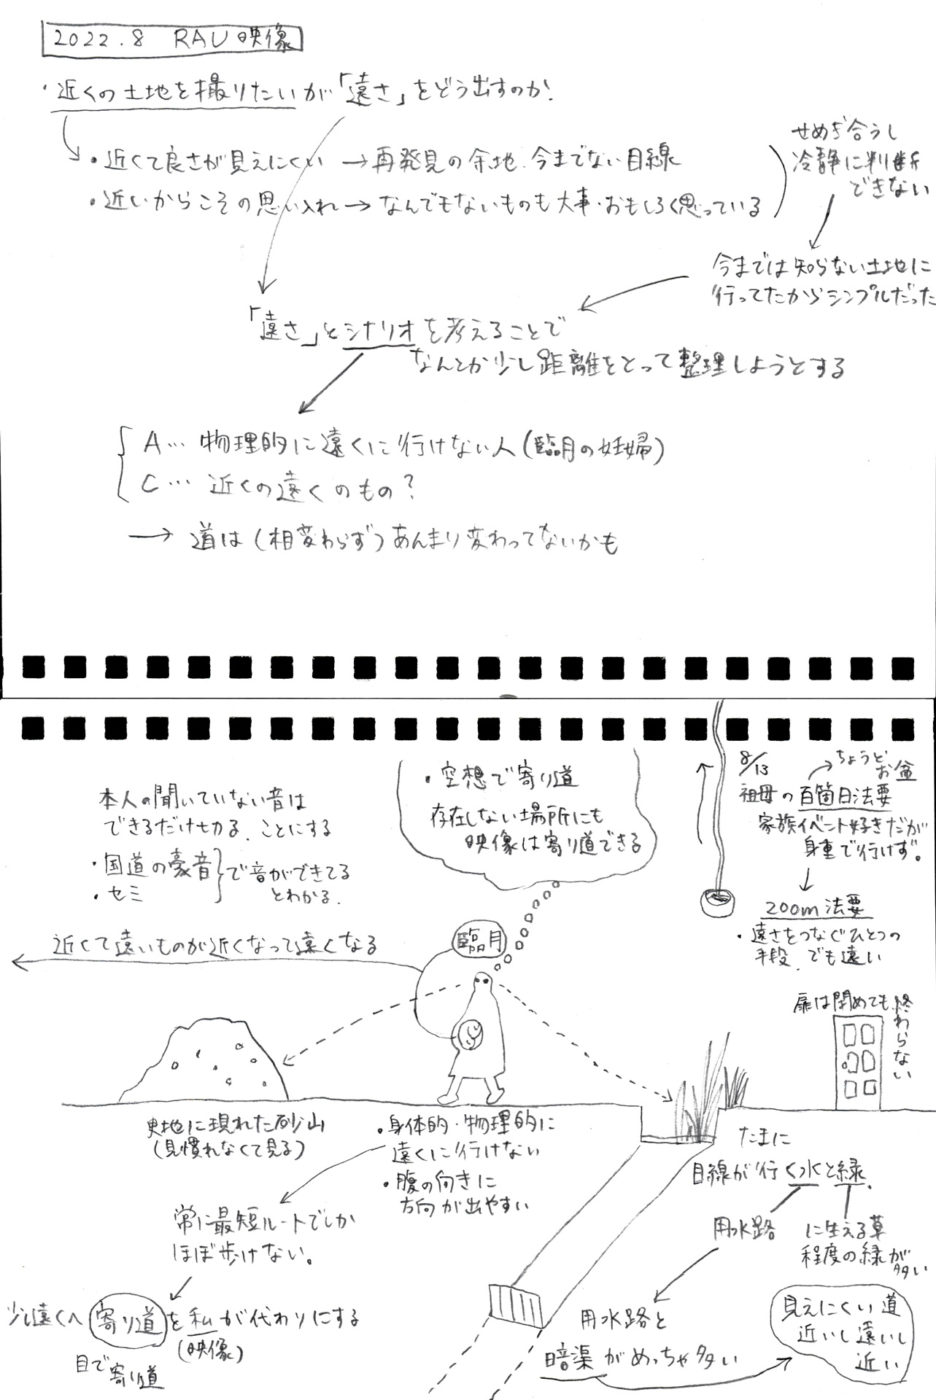 2022.8 RAU 映像
・近くの土地を撮りたいが「遠さ」をどう出すのか.
・近くて良さが見えにくい → 再発見の余地. 今までない目線
・近いからこその思い入れ → なんでもないものも大事・おもしろく思っている
せめぎ合うし
冷静に判断
できない
今までは知らない土地に
行ってたからシンプルだった
「遠さ」とシナリオを考えることで
なんとか少し距離をとって整理しようとする
A… 物理的に遠くに行けない人(臨月の妊婦)
C… 近くの遠くのもの?
→ 道は(相変わらず)あんまり変わってないかも
本人の聞いていない音は
できるだけ切る. ことにする
・国道の豪音
・セミ
で音ができてる
とわかる.
・空想で寄り道
存在しない場所にも
映像は寄り道できる
8/13
ちょうど
お盆
祖母の百箇日法要
家族イベント好きだが
身重で行けず。
200m法要
・遠さをつなぐひとつの
手段. でも遠い
近くて遠いものが近くなって遠くなる
臨月
扉は閉めても終わらない
更地に現れた砂山
(見慣れなくて見る)
・身体的・物理的に
遠くに行けない
・腹の向きに
方向が出やすい
常に最短ルートでしか
ほぼ歩けない。
少し遠くへ寄り道を私が代わりにする
(映像)
目で寄り道
たまに
目線が行く水と緑.
用水路
に生える草
程度の緑が多い
用水路と
暗渠がめっちゃ多い
見えにくい道
近いし遠いし
近い